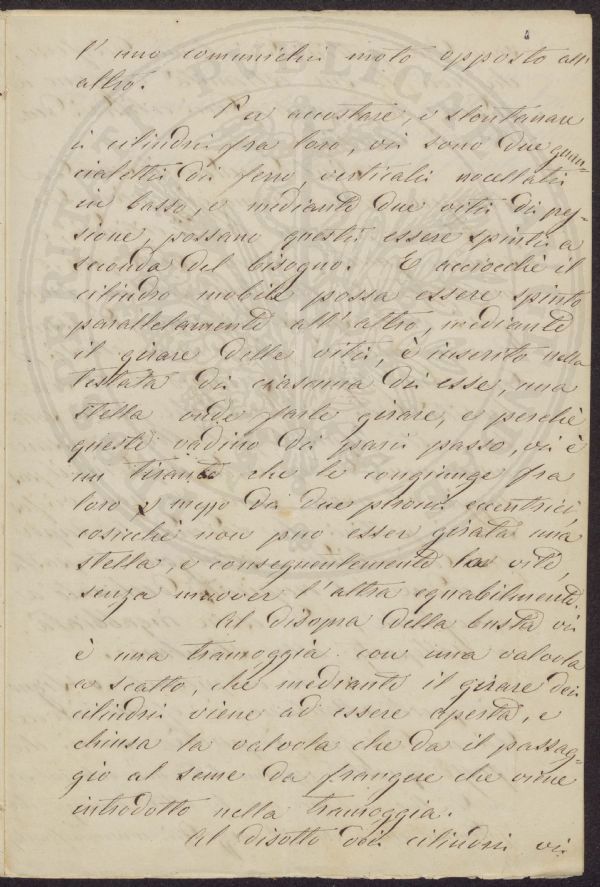 l'uno comunichi moto opposto all'
altro.
Per accostare, e slontanare
i cilindri fra loro, vi sono due guan-
cialetti di ferro verticali nocellati
in basso, e mediante due viti di pres-
sione, possano questi essere spinti a
seconda del bisogno. E acciocchè il
cilindro mobile possa essere spinto
parallelamente all'altro, mediante
il girare delle viti, è inserito nella
testata di ciascuna di esse, una
stella onde farle girare, e perchè
queste vadino di pari passo, vi è
un tirante che le congiunge fra
loro mosso da due pironi eccentrici,
cosicchè non può esser girata una
stella, e conseguentemente la vite,
senza muover l'altra equabilmente.
Al disopra della busta vi
è una tramoggia con una valvola
a scatto, che mediante il girare dei
cilindri viene ad essere aperta, e
chiusa la valvola che da il passag-
gio al seme da frangere che viene
introdotto nella tramoggia.
Al disotto dei cilindri vi